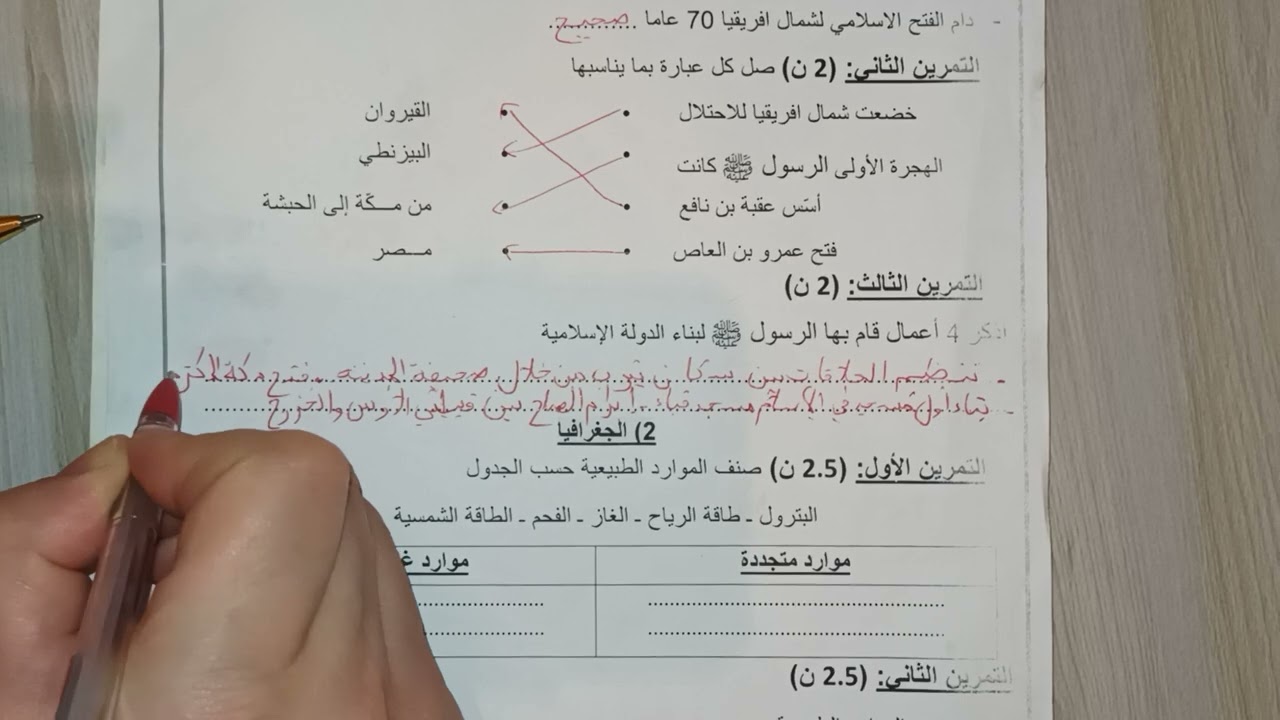 - دام الفتح الاسلامي لشمال افريقيا 70 عاما ..صحيح..
التمرين الثاني: (2 ن) صل كل عبارة بما يناسبها
خضعت شمال افريقيا للاحتلال • • القيروان
الهجرة الأولى الرسول ﷺ كانت • • البيزنطي
أسّس عقبة بن نافع • • من مكّة إلى الحبشة
فتح عمرو بن العاص • • مصر
التمرين الثالث: (2 ن)
اذكر 4 أعمال قام بها الرسول ﷺ لبناء الدولة الإسلامية
- تنظيم العلاقات بين سكان يثرب من خلال صحيفة المدينة - فتح مكة
- بناء اول مسجد في الإسلام مسجد قباء - ابرام الصلح بين قبيلتي الأوس والخزرج
2) الجغرافيا
التمرين الأول: (2.5 ن) صنف الموارد الطبيعية حسب الجدول
البترول - طاقة الرياح - الغاز - الفحم - الطاقة الشمسية
موارد متجددة موارد
التمرين الثاني: (2.5 ن)